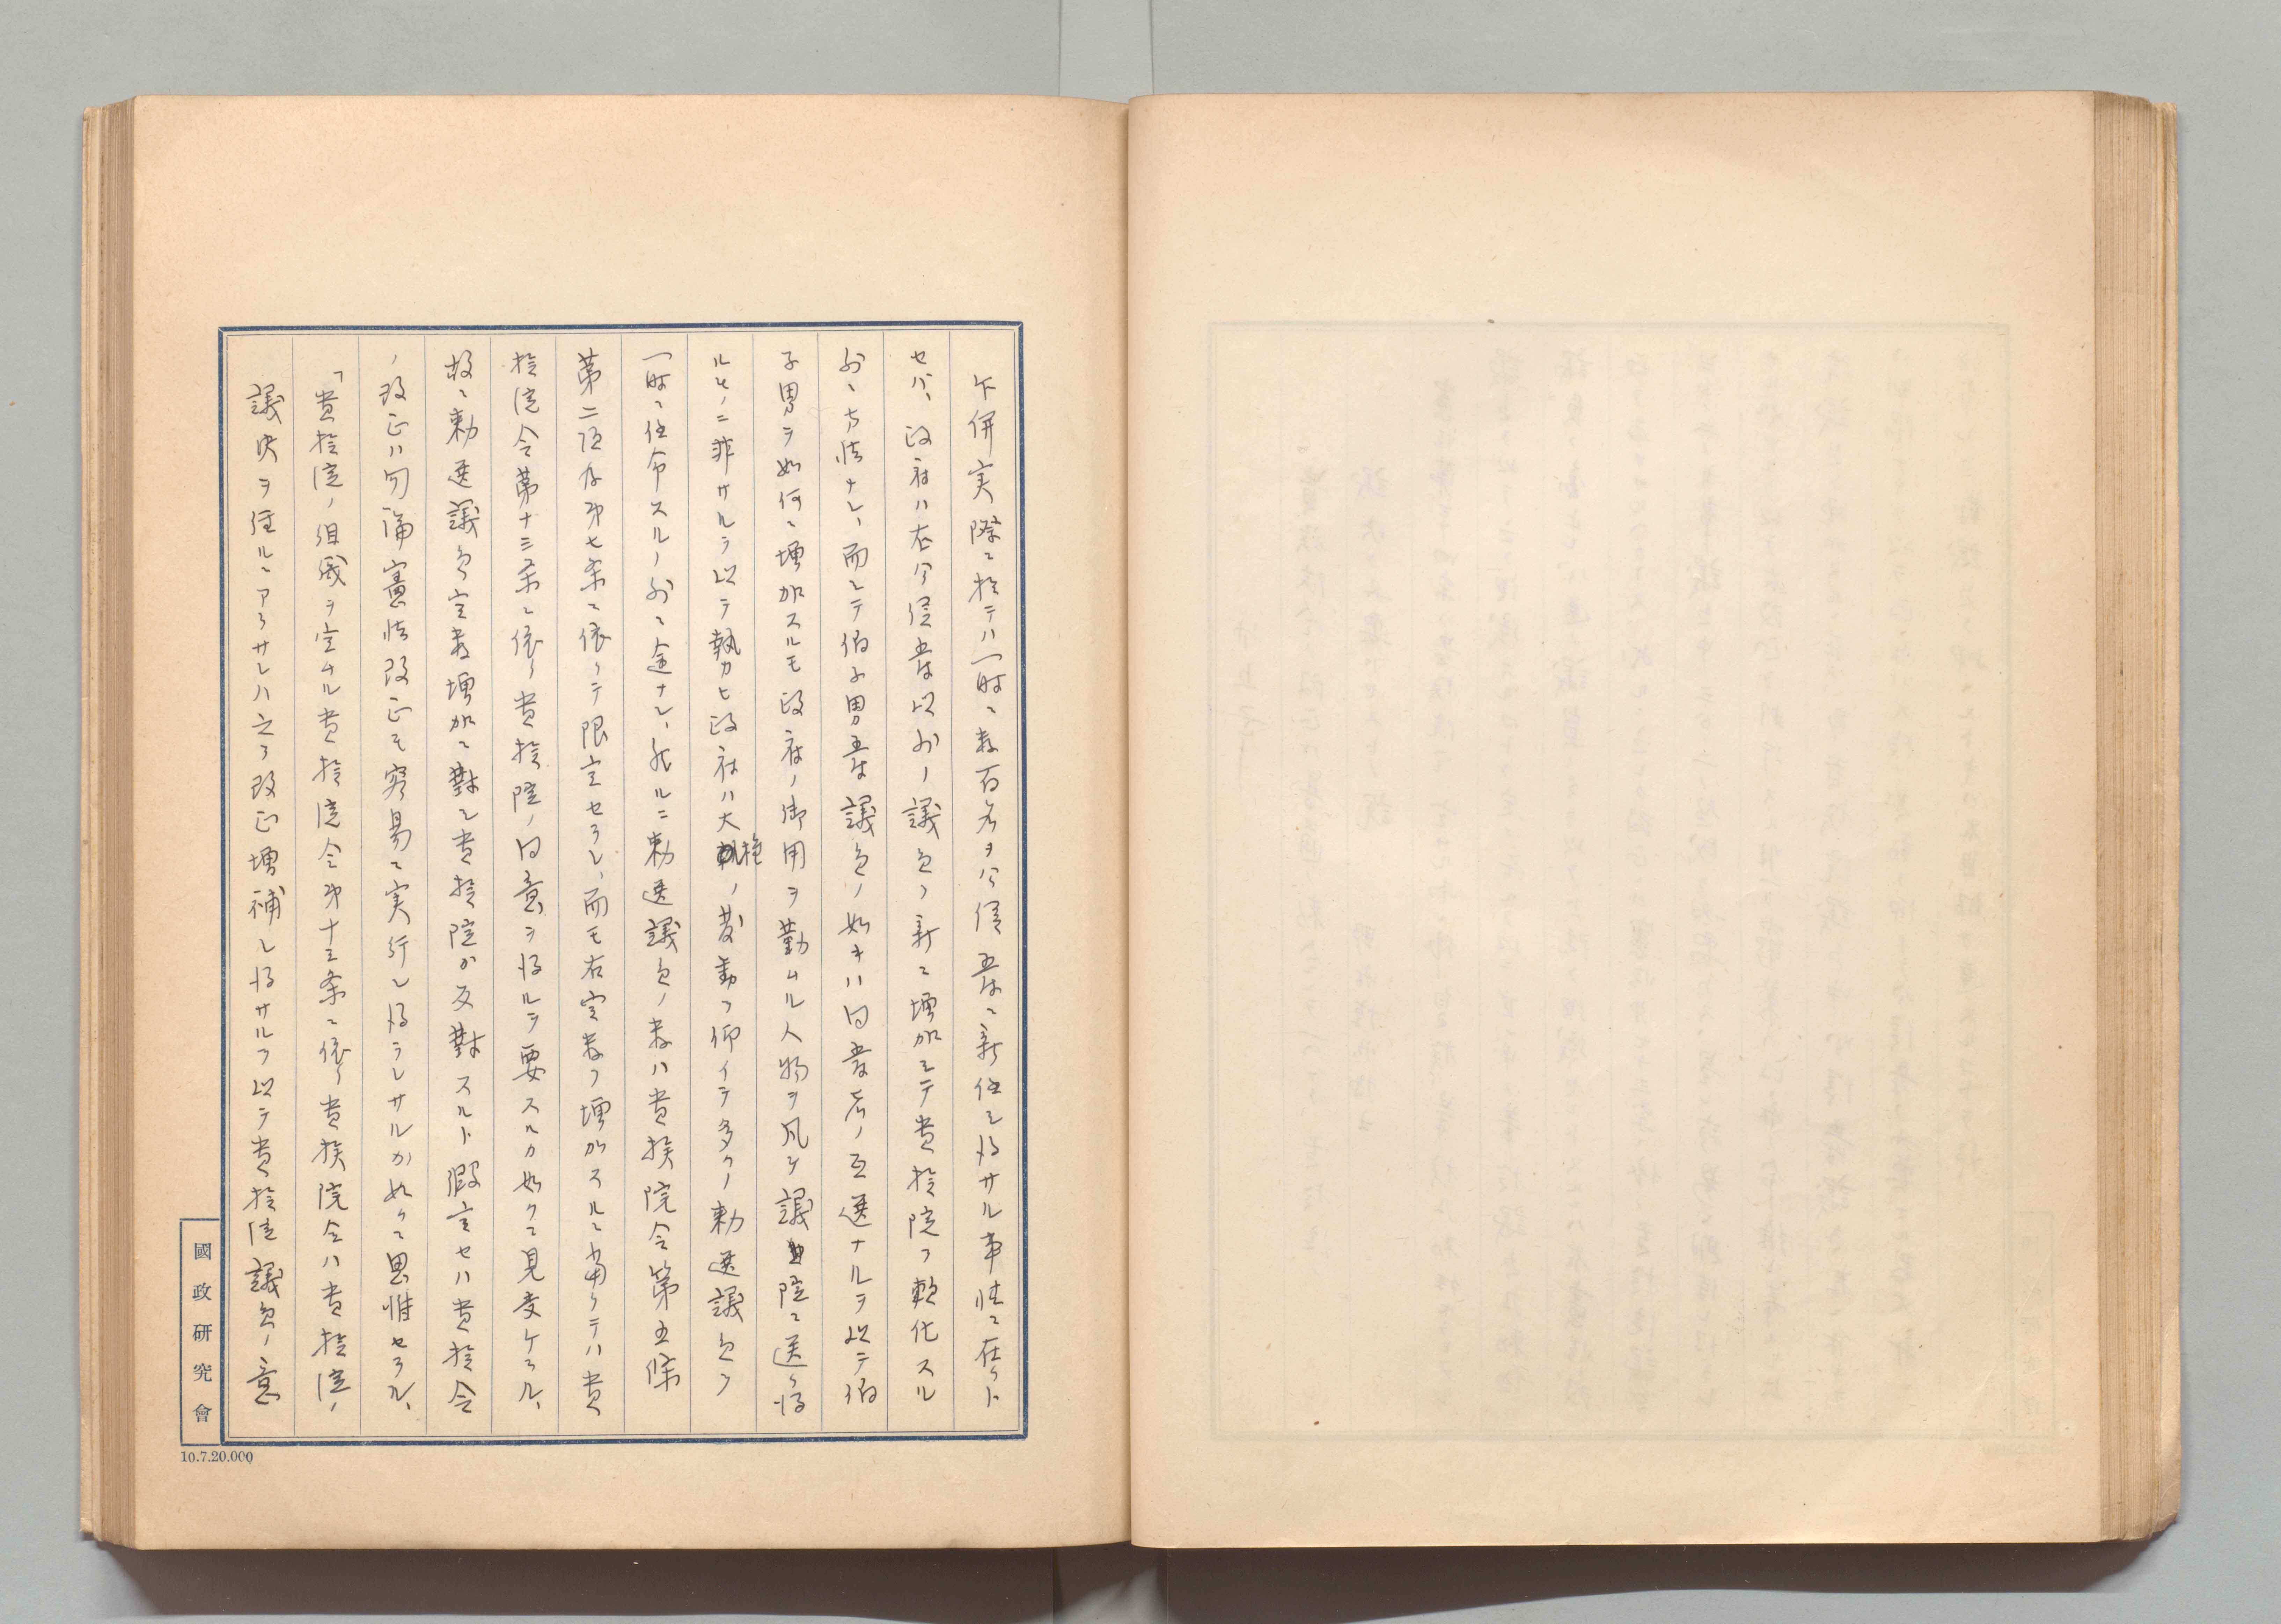 乍併実際ニ於テハ一時ニ数百名ヲ公侯爵ニ新任シ得サル事情ニ在リト
セバ、政府ハ右公侯爵以外ノ議員ヲ新ニ増加シテ貴族院ヲ軟化スル
外ニ方法ナシ、而シテ伯子男爵議員ノ如キハ同爵者ノ互選ナルヲ以テ伯
子男ヲ如何ニ増加スルモ政府ノ御用ヲ勤ムル人物ヲ凡テ議院ニ送リ得
ルモノニ非サルヲ以テ執カヒ政府ハ大権ノ発動ヲ仰イテ多クノ勅選議員ヲ
一時ニ任命スルノ外ニ途ナシ、然ルニ勅選議員ノ数ハ貴族院令第五條
第二項及第七条ニ依リテ限定セラレ、而モ右定数ヲ増加スルニ當リテハ貴
族院令第十三条ニ依リ貴族院ノ同意ヲ得ルヲ要スルカ如クニ見受ケラル、
故ニ勅選議員定数増加ニ對シ貴族院カ反對スルト假定セハ貴族令
ノ改正ハ勿論憲法改正モ容易ニ実行シ得ラレサルカ如クニ思惟セラル、
「貴族院ノ組織ヲ定ムル貴族院令第十三条ニ依リ貴族院令ハ貴族院ノ
議決ヲ経ルニアラサレハ之ヲ改正増補シ得サルヲ以テ貴族院議員ノ意
國政研究會
10.7.20.000